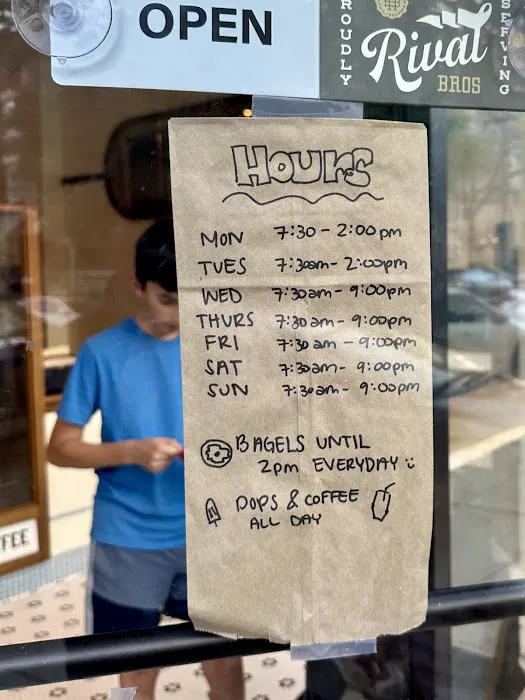 OPEN
PROUDLY
SERVING
Rival
BROS
HOURS
MON 7:30 - 2:00pm
TUES 7:30am - 2:00pm
WED 7:30am - 9:00pm
THURS 7:30am - 9:00pm
FRI 7:30am - 9:00pm
SAT 7:30am - 9:00pm
SUN 7:30am - 9:00pm
BAGELS UNTIL
2pm EVERYDAY :)
POPS & COFFEE
ALL DAY
FEE